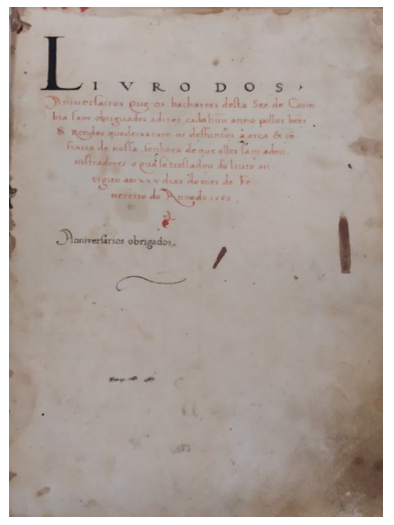 LIVRO DOS,
Anniversairos que os bachares desta See de Coim
bra sam obriguados adizer cada hum anno pollos bees
& Rendas que deixaram os deffuntos á arca & co-
fraria de nossa senhora de que elles sam admi
nistradores o qual se tresladou do livro an-
tiguo aos xxx dias do mes de Fe
vereiro do Anno de
Anniversarios obrigados.